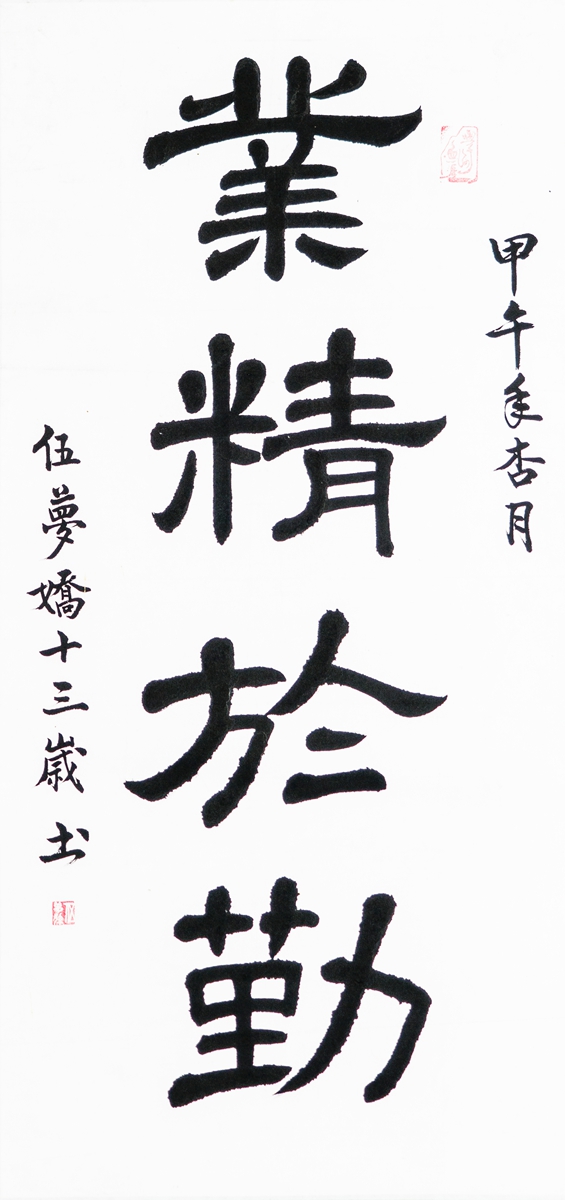 甲午年杏月
業精於勤
伍夢嬌十三歲书